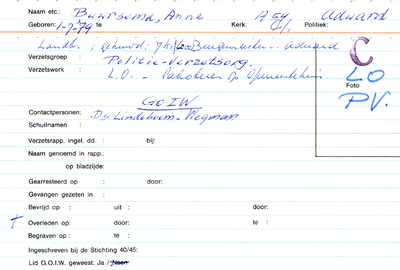 Naam etc.: Buursema, Anne Kerk: Politiek: Aduard
Geboren: 1-7-79 te
Landb., gehuwd,
Verzetsgroep : Politie-verzetsorg.
Verzetswerk : L.O. -
C
LO
Foto
PV.
GOIW
Contactpersonen: Ds Lindeboom - Wegman
Schuilnaam :
Verzetsrapp. ingel. dd. : bij:
Naam genoemd in rapp.:
op bladzijde:
Gearresteerd op : door:
Gevangen gezeten in :
Bevrijd op : uit : door:
† Overleden op: door: te :
Begraven op : te :
Ingeschreven bij de Stichting 40/45:
Lid G.O.I.W. geweest: Ja / neen